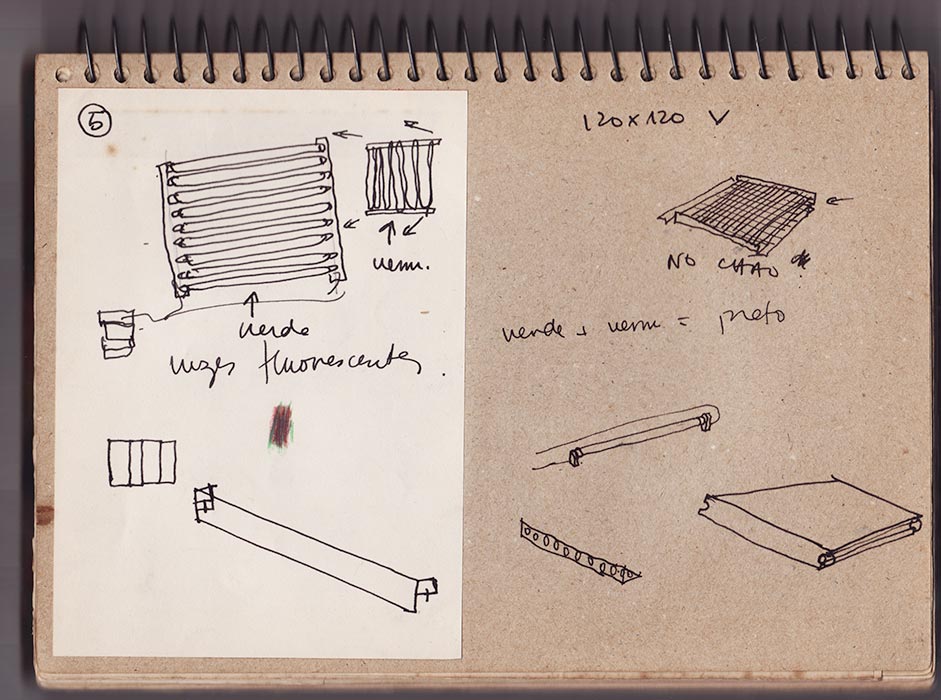 5
verm.
verde
luzes fluorescentes.
120x120 V
NO CHÃO
verde + verm = preto